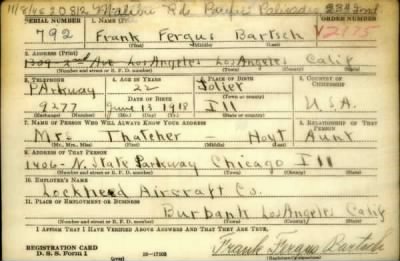 11/8/46 20812 Malibu Rd. Pacific Palisades
SERIAL NUMBER 1. NAME (Print) ORDER NUMBER
792 Frank Fergus Bartsch V2175
(First) (Middle) (Last)
2. ADDRESS (Print)
1309-2nd Ave Los Angeles Los Angeles Calif
(Number and street or R. F. D. number) (Town) (County) (State)
3. TELEPHONE 4. AGE IN YEARS 5. PLACE OF BIRTH 6. COUNTRY OF CITIZENSHIP
PArkway 22 Joliet
DATE OF BIRTH (Town or county)
9277 June 13 1918 Ill U.S.A.
(Exchange) (Number) (Mo.) (Day) (Yr.) (State or country)
7. NAME OF PERSON WHO WILL ALWAYS KNOW YOUR ADDRESS 8. RELATIONSHIP OF THAT PERSON
Mrs Thatcher - Hoyt Aunt
(Mr., Mrs., Miss) (First) (Middle) (Last)
9. ADDRESS OF THAT PERSON
1406-N. State Parkway Chicago Ill
(Number and street or R. F. D. number) (Town) (County) (State)
10. EMPLOYER'S NAME
Lockheed Aircraft Co.
11. PLACE OF EMPLOYMENT OR BUSINESS
Burbank Los Angeles Calif
(Number and street or R. F. D. number) (Town) (County) (State)
I AFFIRM THAT I HAVE VERIFIED ABOVE ANSWERS AND THAT THEY ARE TRUE.
REGISTRATION CARD
D. S. S. Form 1 Frank Fergus Bartsch
(Registrant's signature)